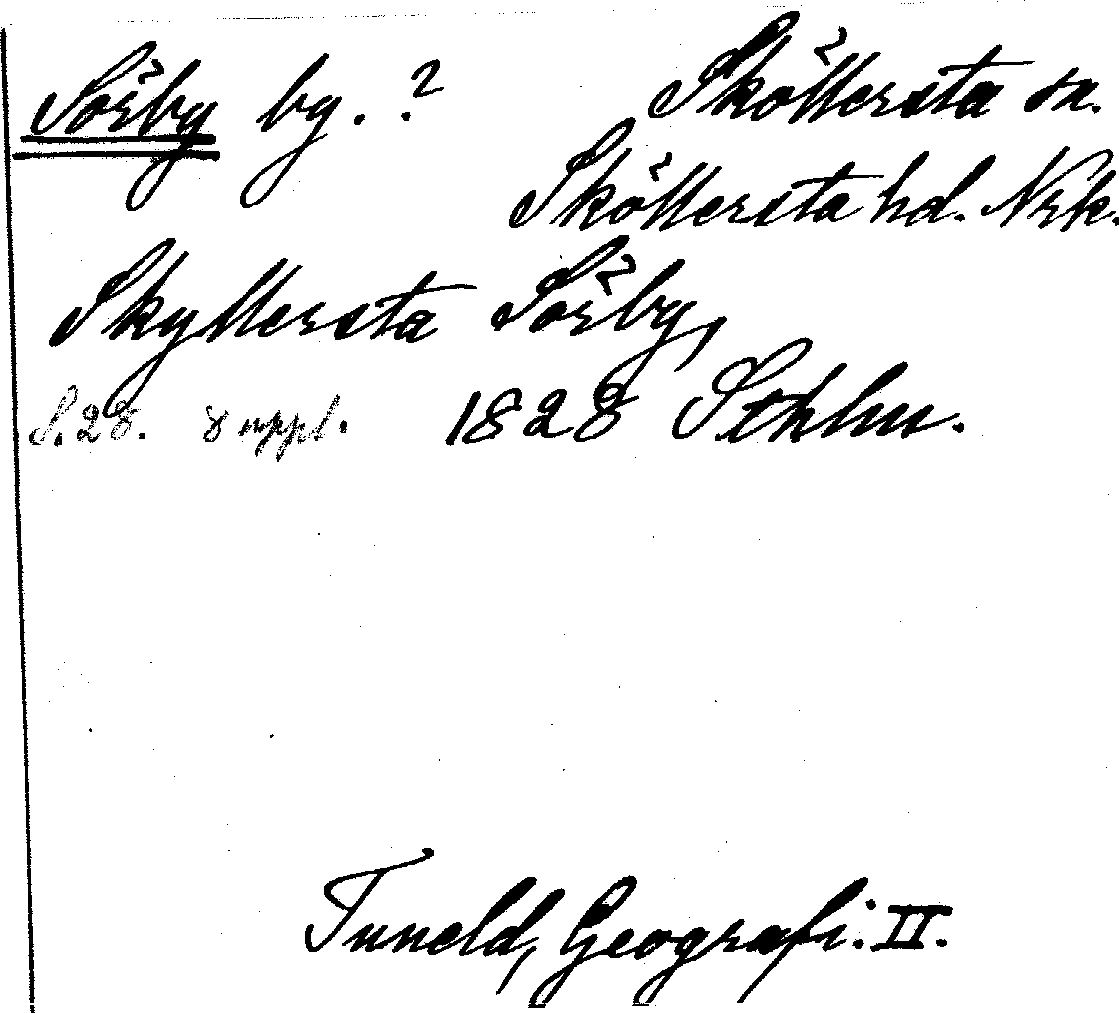 Sörby by. ? Sköllersta sn.
Sköllersta hd. Nrk.
Skyllersta Sörby,
S. 28. 8 uppl. 1828 Sthlm.
Tuneld, Geografi. II.